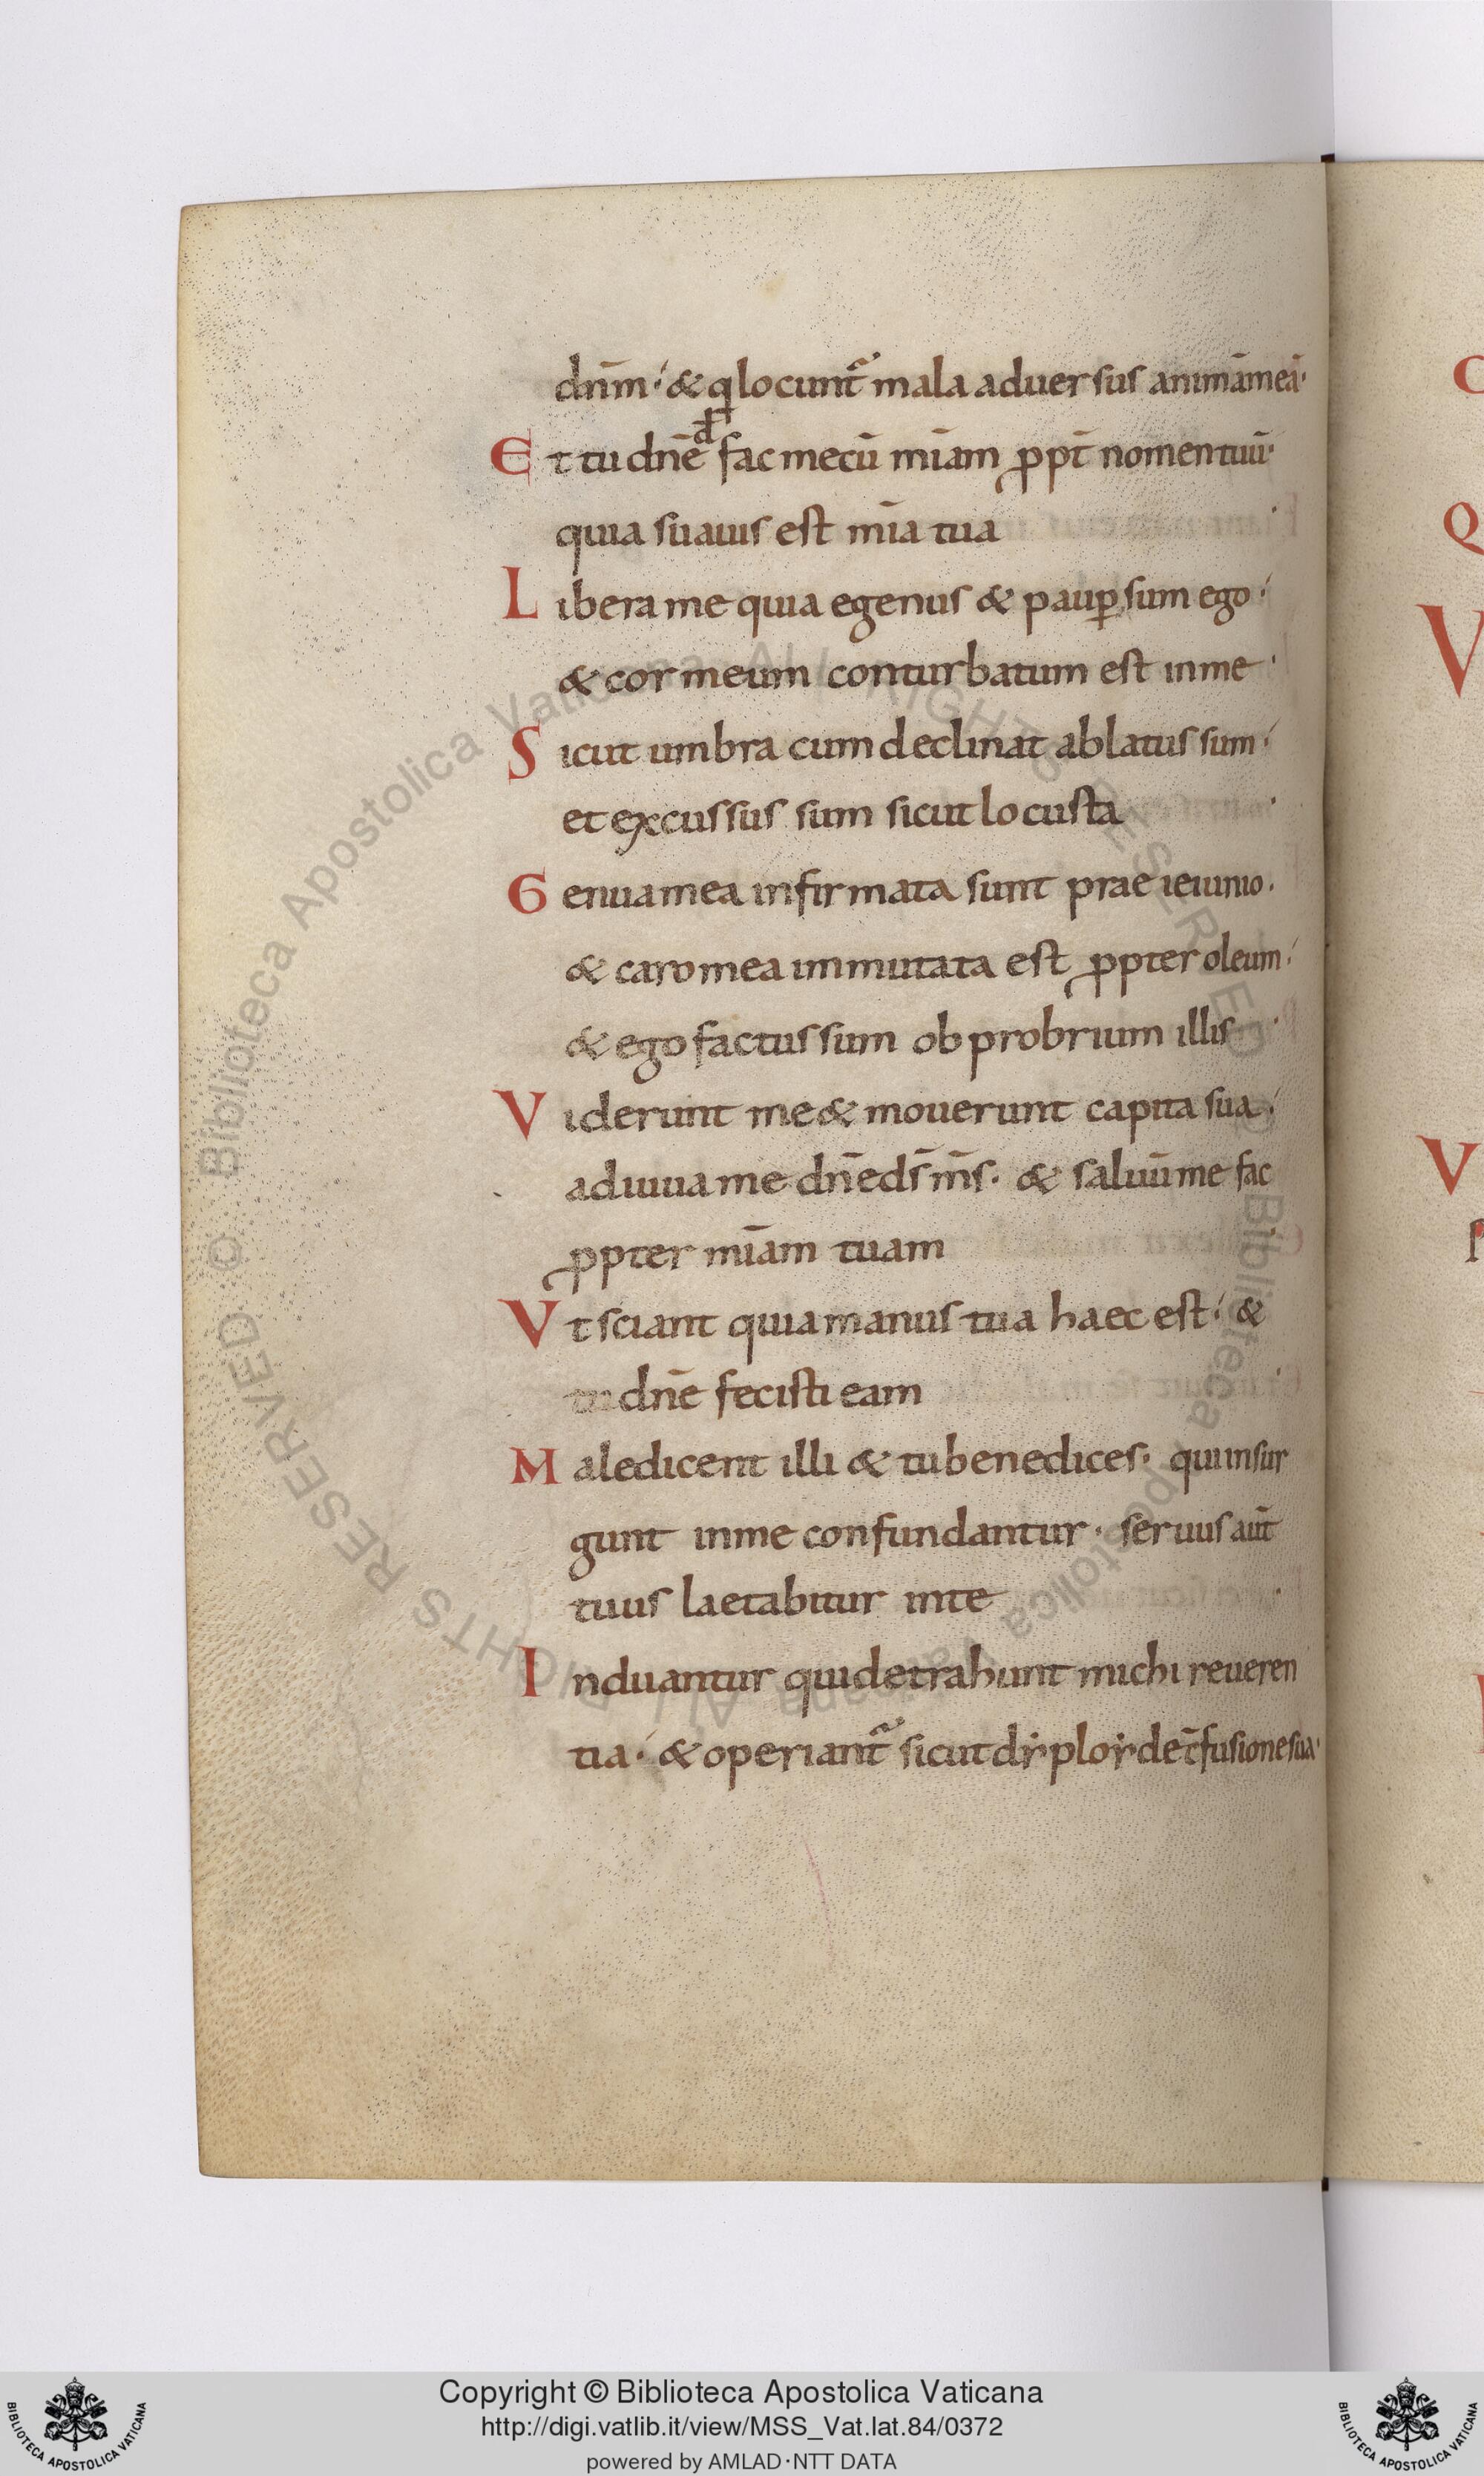 dn̄m· & q locunt᷑ mala aduersus animā meā·
Et tu dn̄e d̄ fac mecū mīam ꝓpt̄ nomen tuū·
quia suauis est mīa tua ·
Libera me quia egenus & pauꝑ sum ego·
& cor meum conturbatum est in me ·
Sicut umbra cum declinat ablatus sum·
et excussus sum sicut locusta ·
Genua mea infirmata sunt prae ieiunio·
& caro mea immutata est ꝓpter oleum·
& ego factus sum obprobrium illis ·
Viderunt me & mouerunt capita sua·
adiuua me dn̄e ds̄ ms̄· & saluū me fac
ꝓpter mīam tuam ·
Vt sciant quia manus tua haec est· &
tu dn̄e fecisti eam ·
Maledicent illi & tu benedices· qui insur
gunt in me confundantur· seruus aūt
tuus laetabitur in te ·
Induantur qui detrahunt michi reueren
tia· & operiant᷑ sicut
fusione sua·
Copyright © Biblioteca Apostolica Vaticana
http://digi.vatlib.it/view/MSS_Vat.lat.84/0372
powered by AMLAD·NTT DATA
BIBLIOTECA APOSTOLICA VATICANA
BIBLIOTECA APOSTOLICA VATICANA